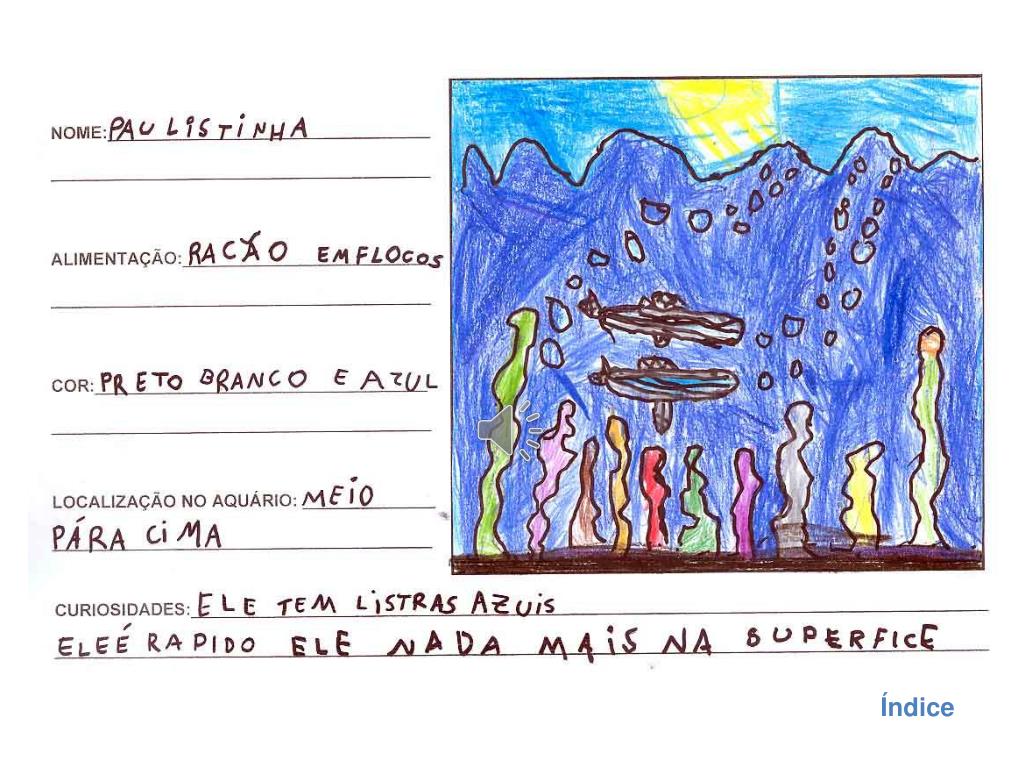 NOME: PAULISTINHA
ALIMENTAÇÃO: RACÃO EMFLOCOS
COR: PRETO BRANCO E AZUL
LOCALIZAÇÃO NO AQUÁRIO: MEIO
PÁRA CIMA
CURIOSIDADES: ELE TEM LISTRAS AZUIS
ELEÉ RAPIDO ELE NADA MAIS NA SUPERFICE
Índice